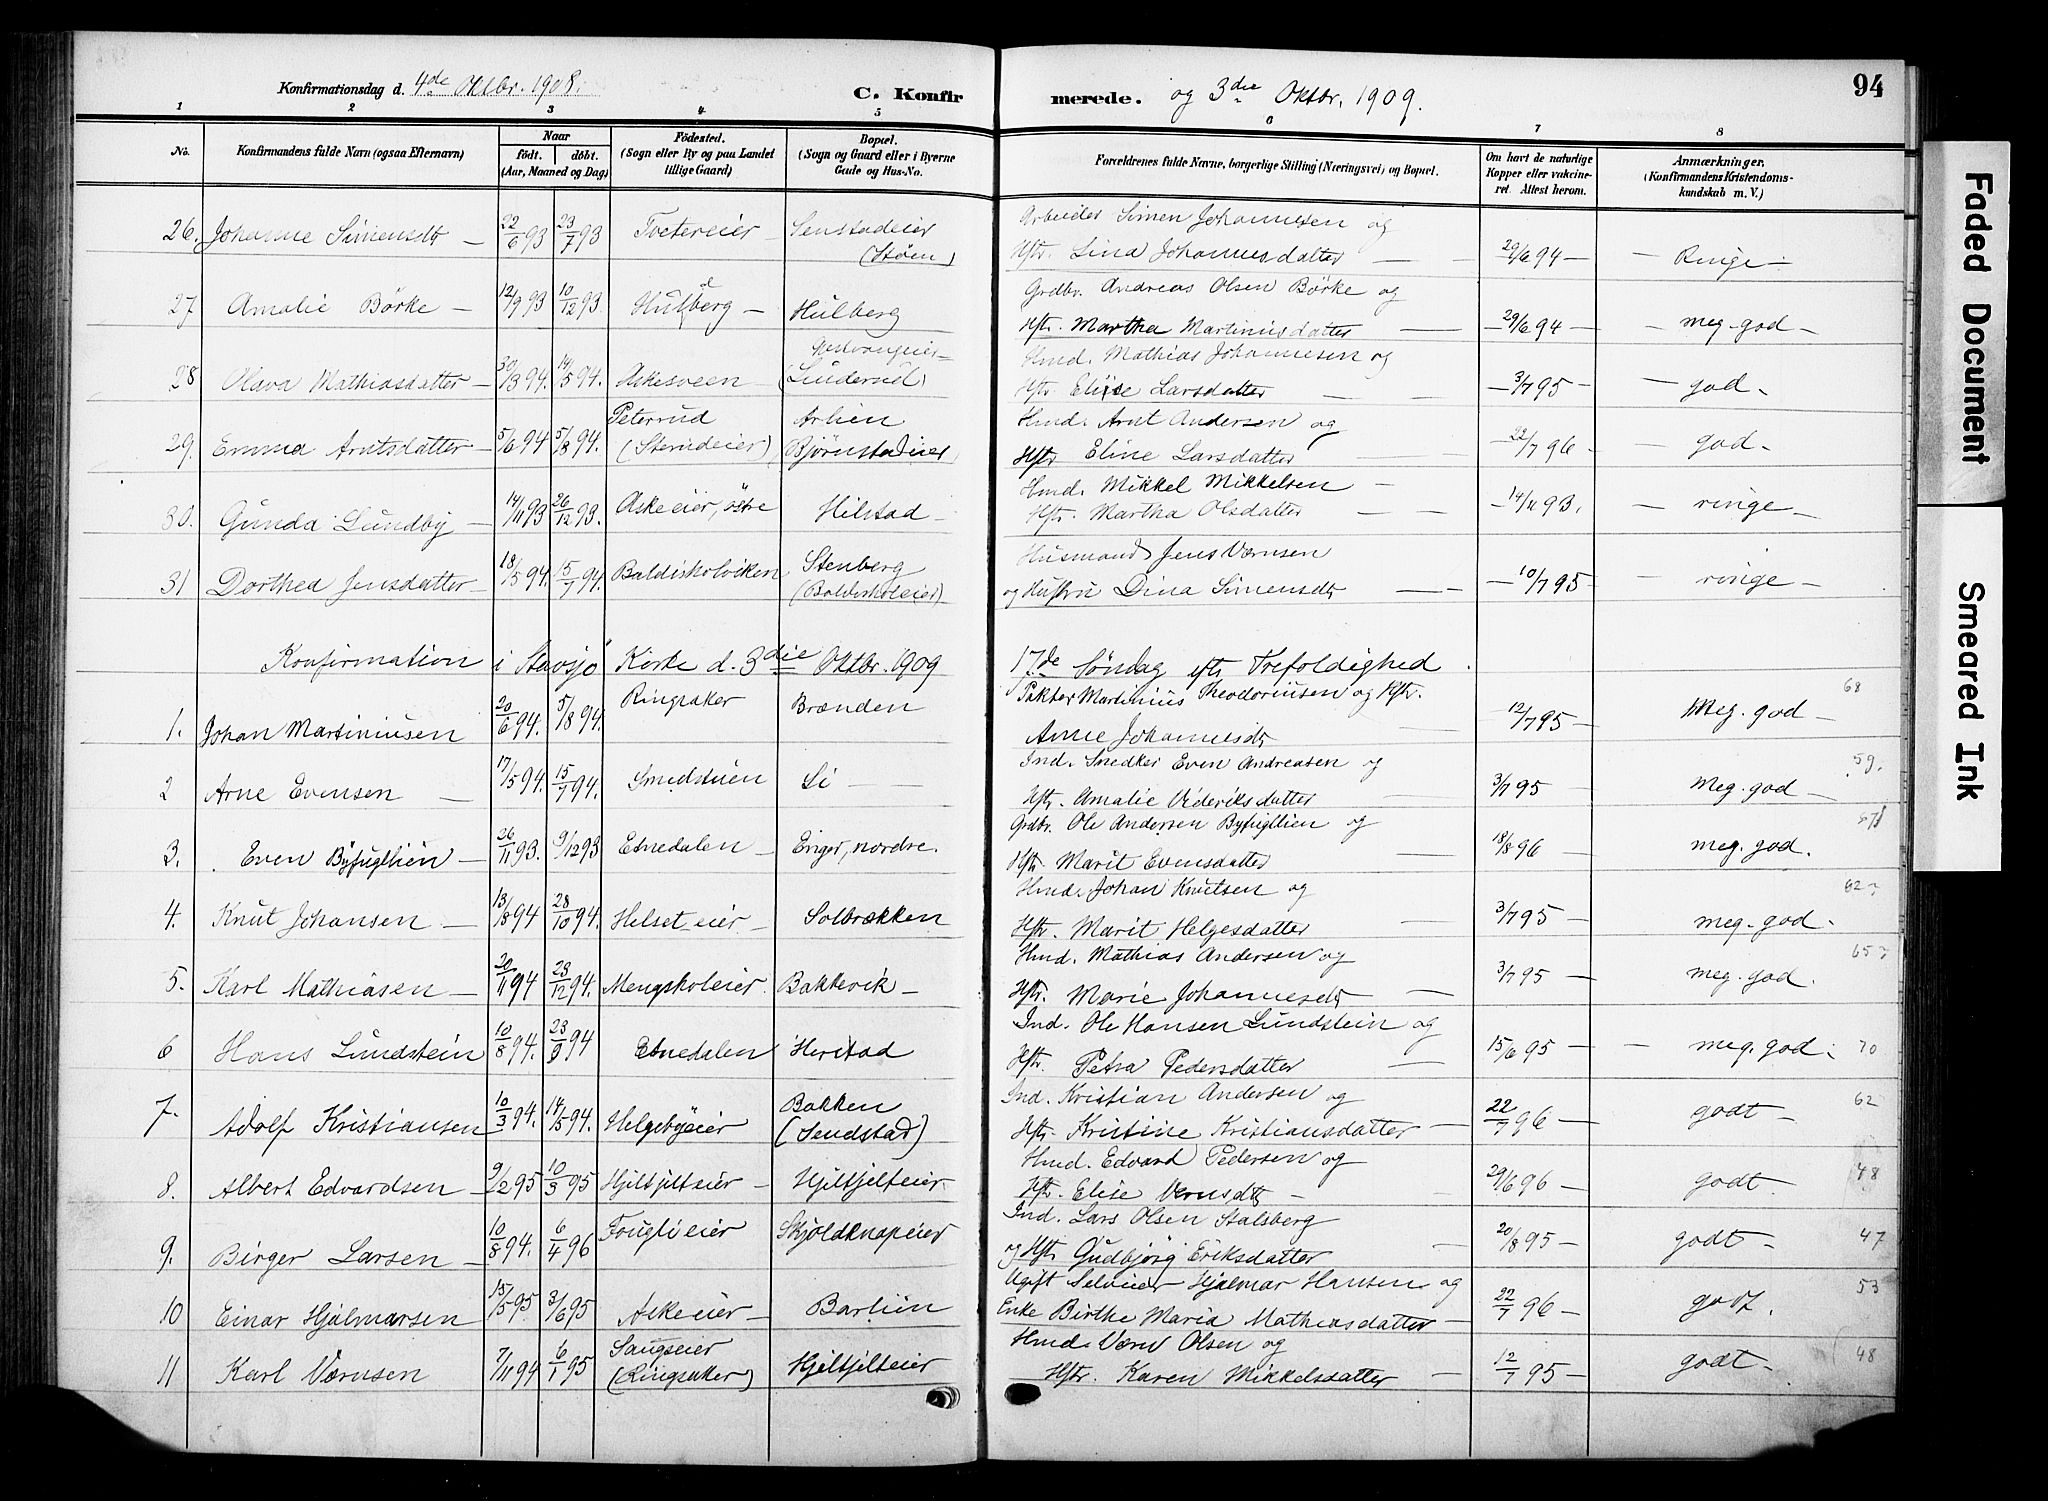 Konfirmationsdag d. 4de Oktbr. 1908.
C. Konfirmerede. og 3die Oktbr. 1909.
94
1 2 3 4 5 6 7 8
No.
Konfirmandens fulde Navn (ogsaa Efternavn)
Naar
födt. döbt.
(Aar, Maaned og Dag)
Födested.
(Sogn eller By og paa Landet
tillige Gaard)
Bopæl.
(Sogn og Gaard eller i Byerne
Gade og Hus-No.
Forældrenes fulde Navne, borgerlige Stilling (Næringsvei) og Bopæl.
Om havt de naturlige
Kopper eller vakcine-
ret. Attest herom.
Anmærkninger.
(Konfirmandens Kristendoms-
kundskab m. V.)
26. Johanne Simensdt — 22/6 93 23/7 93 Tvetereier — Senstadeier (Støen) Arbeider Simen Johannesen og Hstr. Lina Johannesdatter — 29/6 94 — Ringe —
27. Amalie Börke — 12/9 93 10/12 93. Hulberg — Hulberg Grdbr. Andreas Olsen Börke og Hstr. Martha Martinusdatter — 29/6 94 — meg. god —
28 Olava Mathiasdatter — 30/3 94. 14/5 94. Askesveen — (Linderud) Hmd. Mathias Johannesen og Hstr. Elise Larsdatter — 3/7 95 — god —
29. Emma Arntsdatter — 5/6 94 5/8 94. Peterrud (Stemdeier) Arlien Bjørnstadeier Hmd. Arnt Andersen og Hstr Eline Larsdatter — 22/7 96 — god —
30. Gunda Lundby — 14/11 93 26/12 93. Askeeier, östre Hilstad — Hmd. Mikkel Mikkelsen — Hstr. Martha Olsdatter — 14/11 93. — ringe —
31 Dorthea Jensdatter — 18/5 94. 15/7 94. Baldiskolviken Stenberg (Baldiskoleier) Husmand Jens Værnsen og Hustru Dina Simensdt — 10/7 95 — ringe —
Konfirmation i Stavsjö Kirke d. 3die Oktbr. 1909 17de Söndag eft. Trefoldighed.
1. Johan Martiniusen 20/6 94. 5/8 94. Ringsaker Brænden Pakter Martinius Theodoriusen og Hstr. Anne Johannesdt 12/7 95 — Meg. god — 68
2 Arne Evensen — 17/5 94. 15/7 94. Smedstuen Li — Ind. Snedker Even Andreasen og Hstr. Amalie Dideriksdatter 3/7 95 Meg. god — 59.
3. Even Byfugllien — 26/11 93. 9/12 93 Etnedalen — Enger, nordre. Grdbr. Ole Andersen Byfugllien og Hstr. Marit Evensdatter 18/8 96 meg. god.
4. Knut Johansen — 13/8 94 28/10 94. Helset eier — Solbrækken Hmd. Johan Knutsen og Hstr. Marit Helgesdatter 3/7 95 — meg. god. 62
5. Karl Mathiasen — 20/11 94 23/12 94. Mengskoleier. Bakkevik — Hmd. Mathias Andersen og Hstr. Marie Johannesdt — 3/7 95 — meg. god. 65
6 Hans Lundstein 10/8 94. 23/9 94 Etnedalen Herstad Ind. Ole Hansen Lundstein og Hstr. Petra Pedersdatter — 15/6 95 — meg. god. 70
7. Adolf Kristiansen 10/3 94. 14/5 94. Helgebyeier Bakken (Sendstad) Ind. Kristian Andersen og Hstr. Kristine Kristiansdatter — 22/7 96 — godt — 62
8. Albert Edvardsen — 9/2 95 10/3 95 Hjeltjelteier — Hjeltjelteier. Hmd. Edvard Pedersen og Hstr. Elise Vernsdt — 29/6 96 — godt. 48
9. Birger Larsen — 10/8 94. 6/4 96 Fouglieier Skjoldknapeier Ind. Lars Olsen Stalsberg og Hstr Gudbjörg Eriksdatter — 20/8 95 — godt — 47
10 Einar Hjalmarsen 15/5 95. 3/6 95 Askeeier — Barlien Ugift Selveier Hjalmar Hansen og Enke Birthe Maria Mathiasdatter — 22/7 96 — godt. 53
11 Karl Værnsen 7/11 94 6/1 95 Saugseier (Ringsaker) Hjeltjelteier Hmd. Værn Olsen og Hstr. Karen Mikkelsdatter — 12/7 95 — godt — 48
Faded Document
Smeared Ink